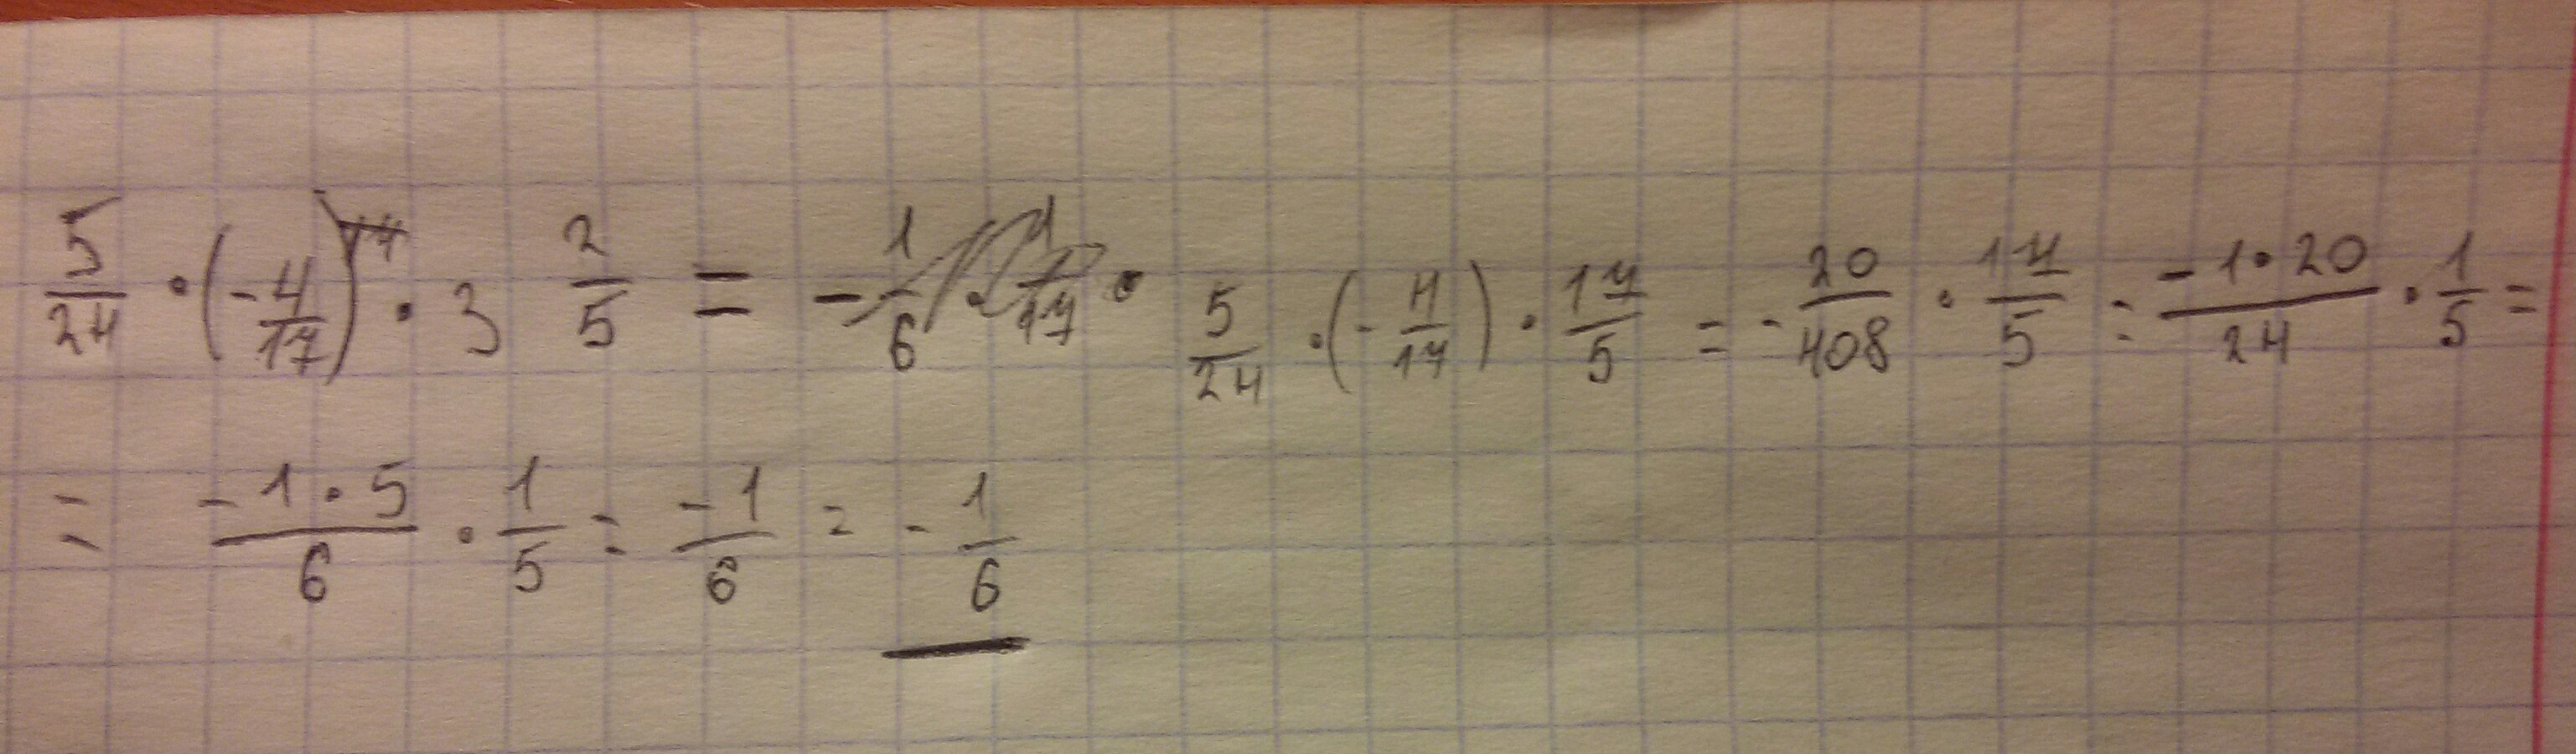 5/24 · (-4/17) · 3 2/5 = 5/24 · (-4/17) · 17/5 = - 20/408 · 17/5 = -1·20/24 · 1/5 =
= -1·5/6 · 1/5 = -1/6 = - 1/6